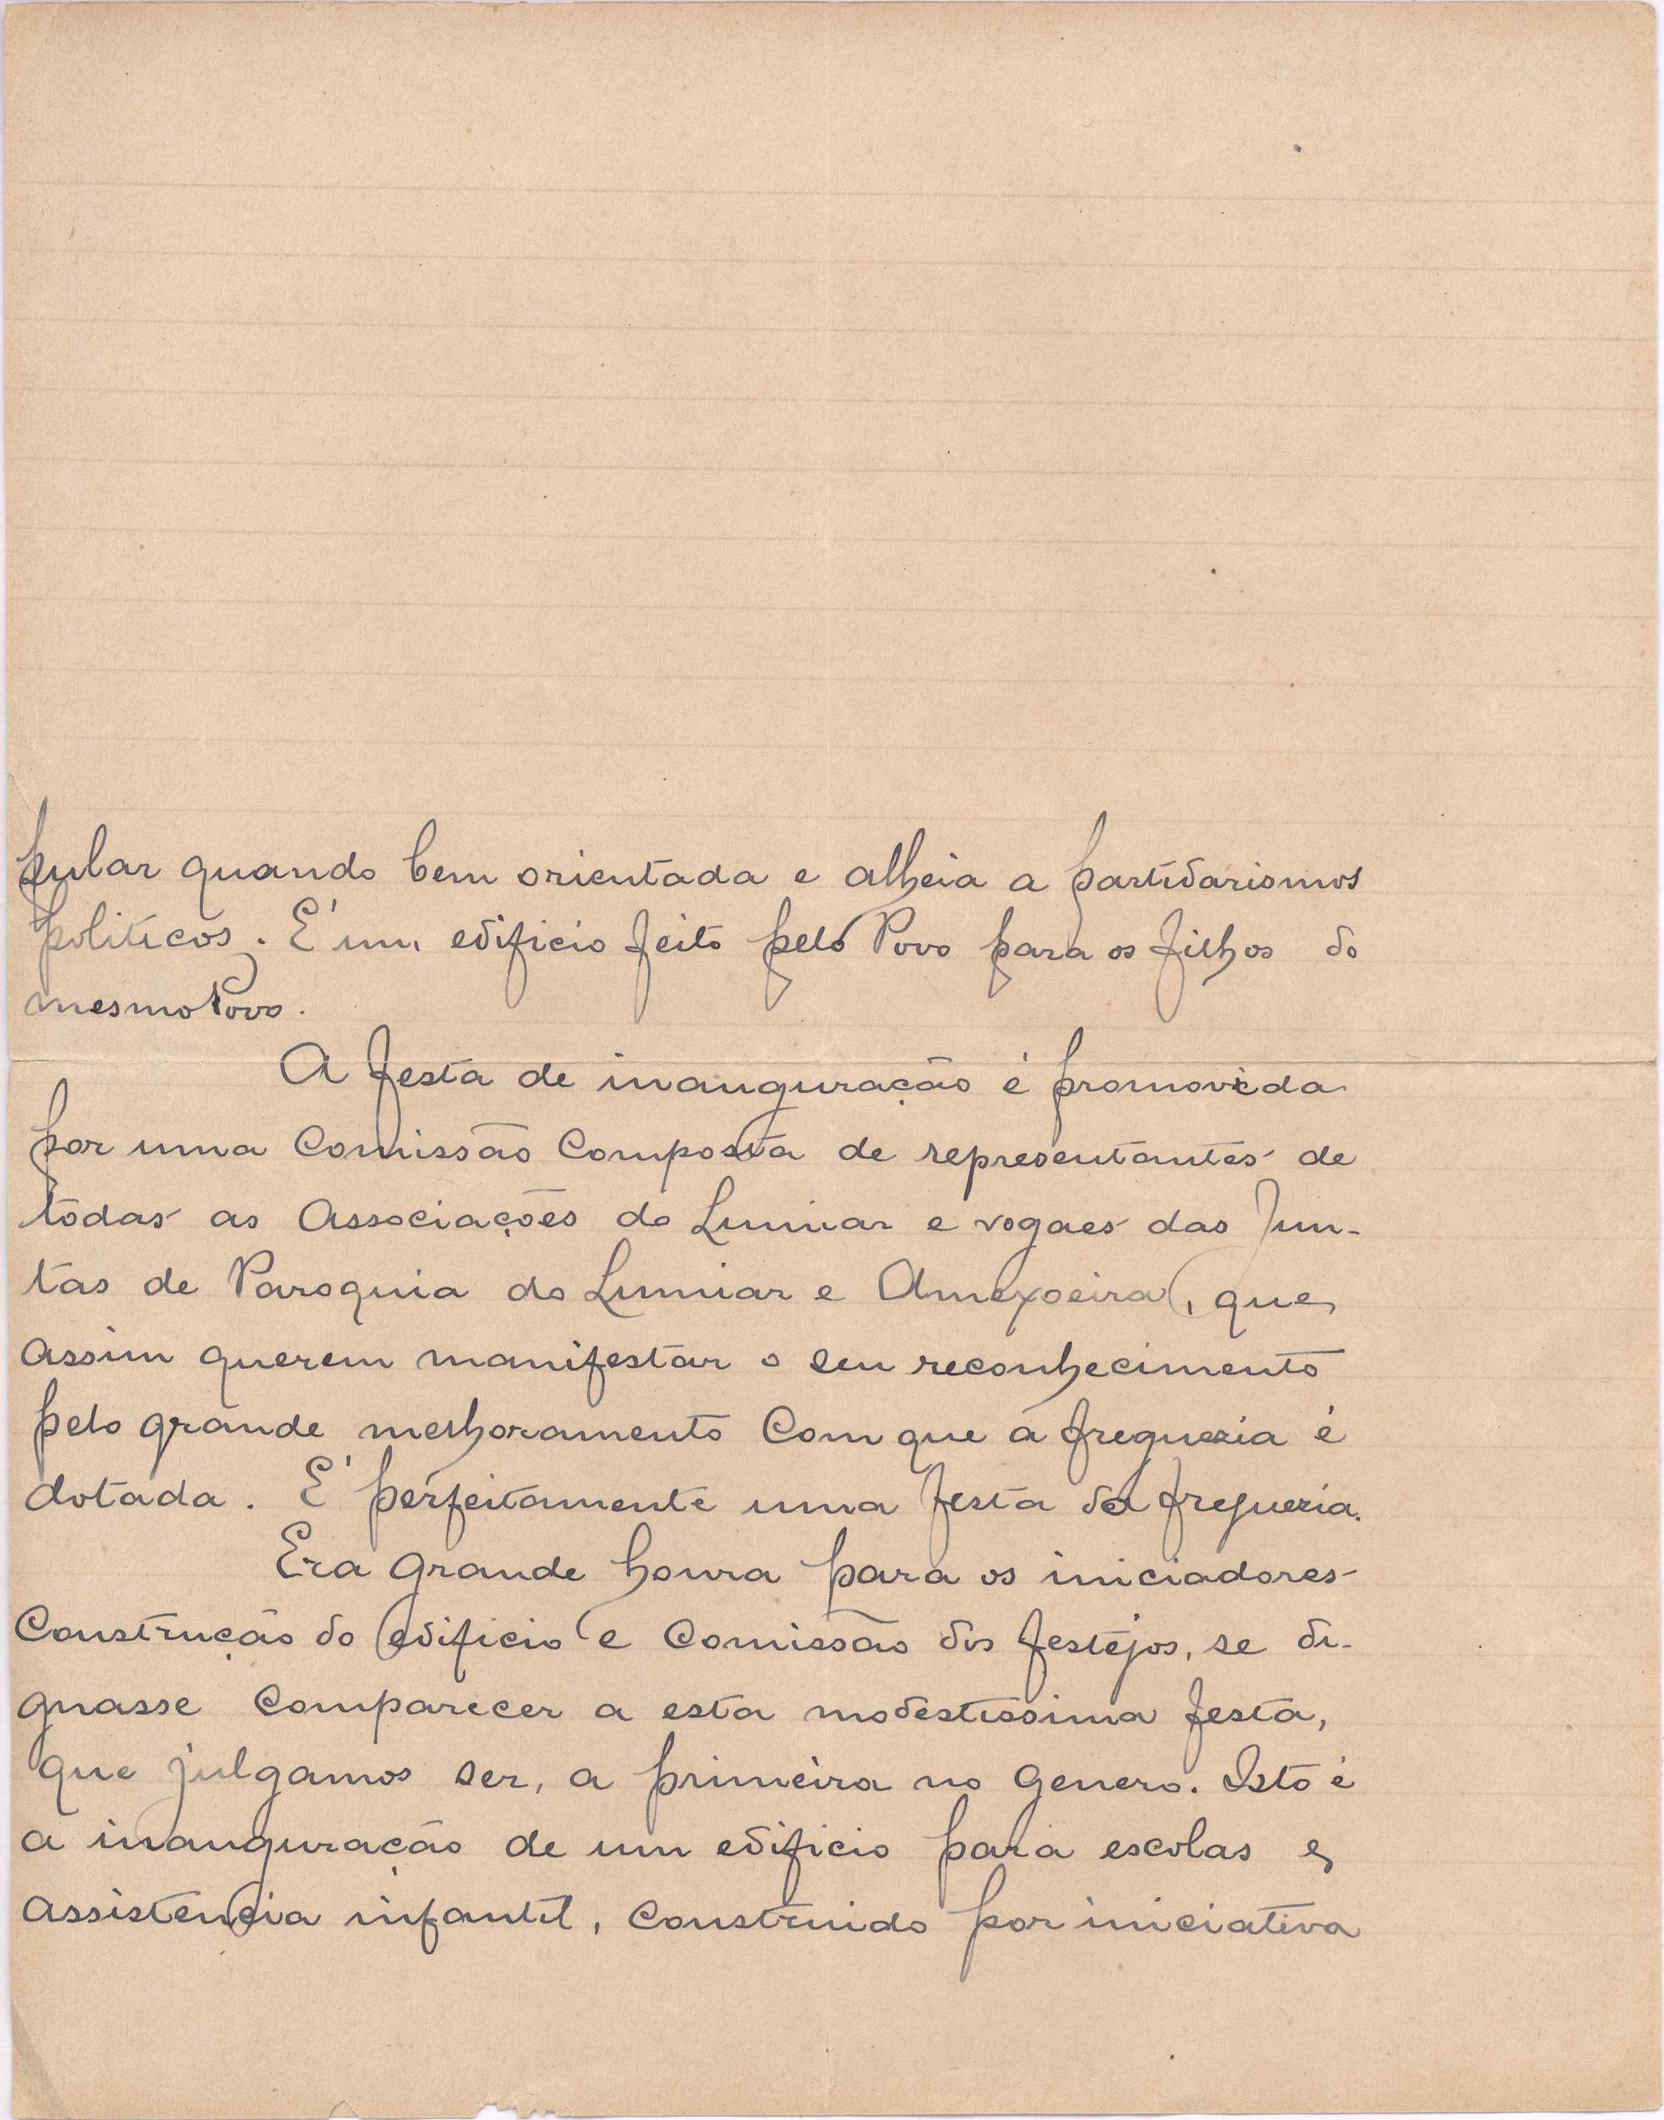 pular quando bem orientada e alheia a partidarismos
politicos. É um edificio feito pelo Povo para os filhos do
mesmo Povo.
A festa de inauguração é promovida
por uma Comissão Composta de representantes de
todas as Associações do Lumiar e vogaes das Jun-
tas de Paroquia do Lumiar e Amexoeira, que,
assim querem manifestar o seu reconhecimento
pelo grande melhoramento Com que a freguezia é
dotada. É perfeitamente uma festa da freguezia.
Era grande honra para os iniciadores
Construção do edificio e Comissão dos festejos, se di-
gnasse Comparecer a esta modestissima festa,
que julgamos ser, a primeira no genero. Isto é
a inauguração de um edificio para escolas e,
assistencia infantil, Construido por iniciativa